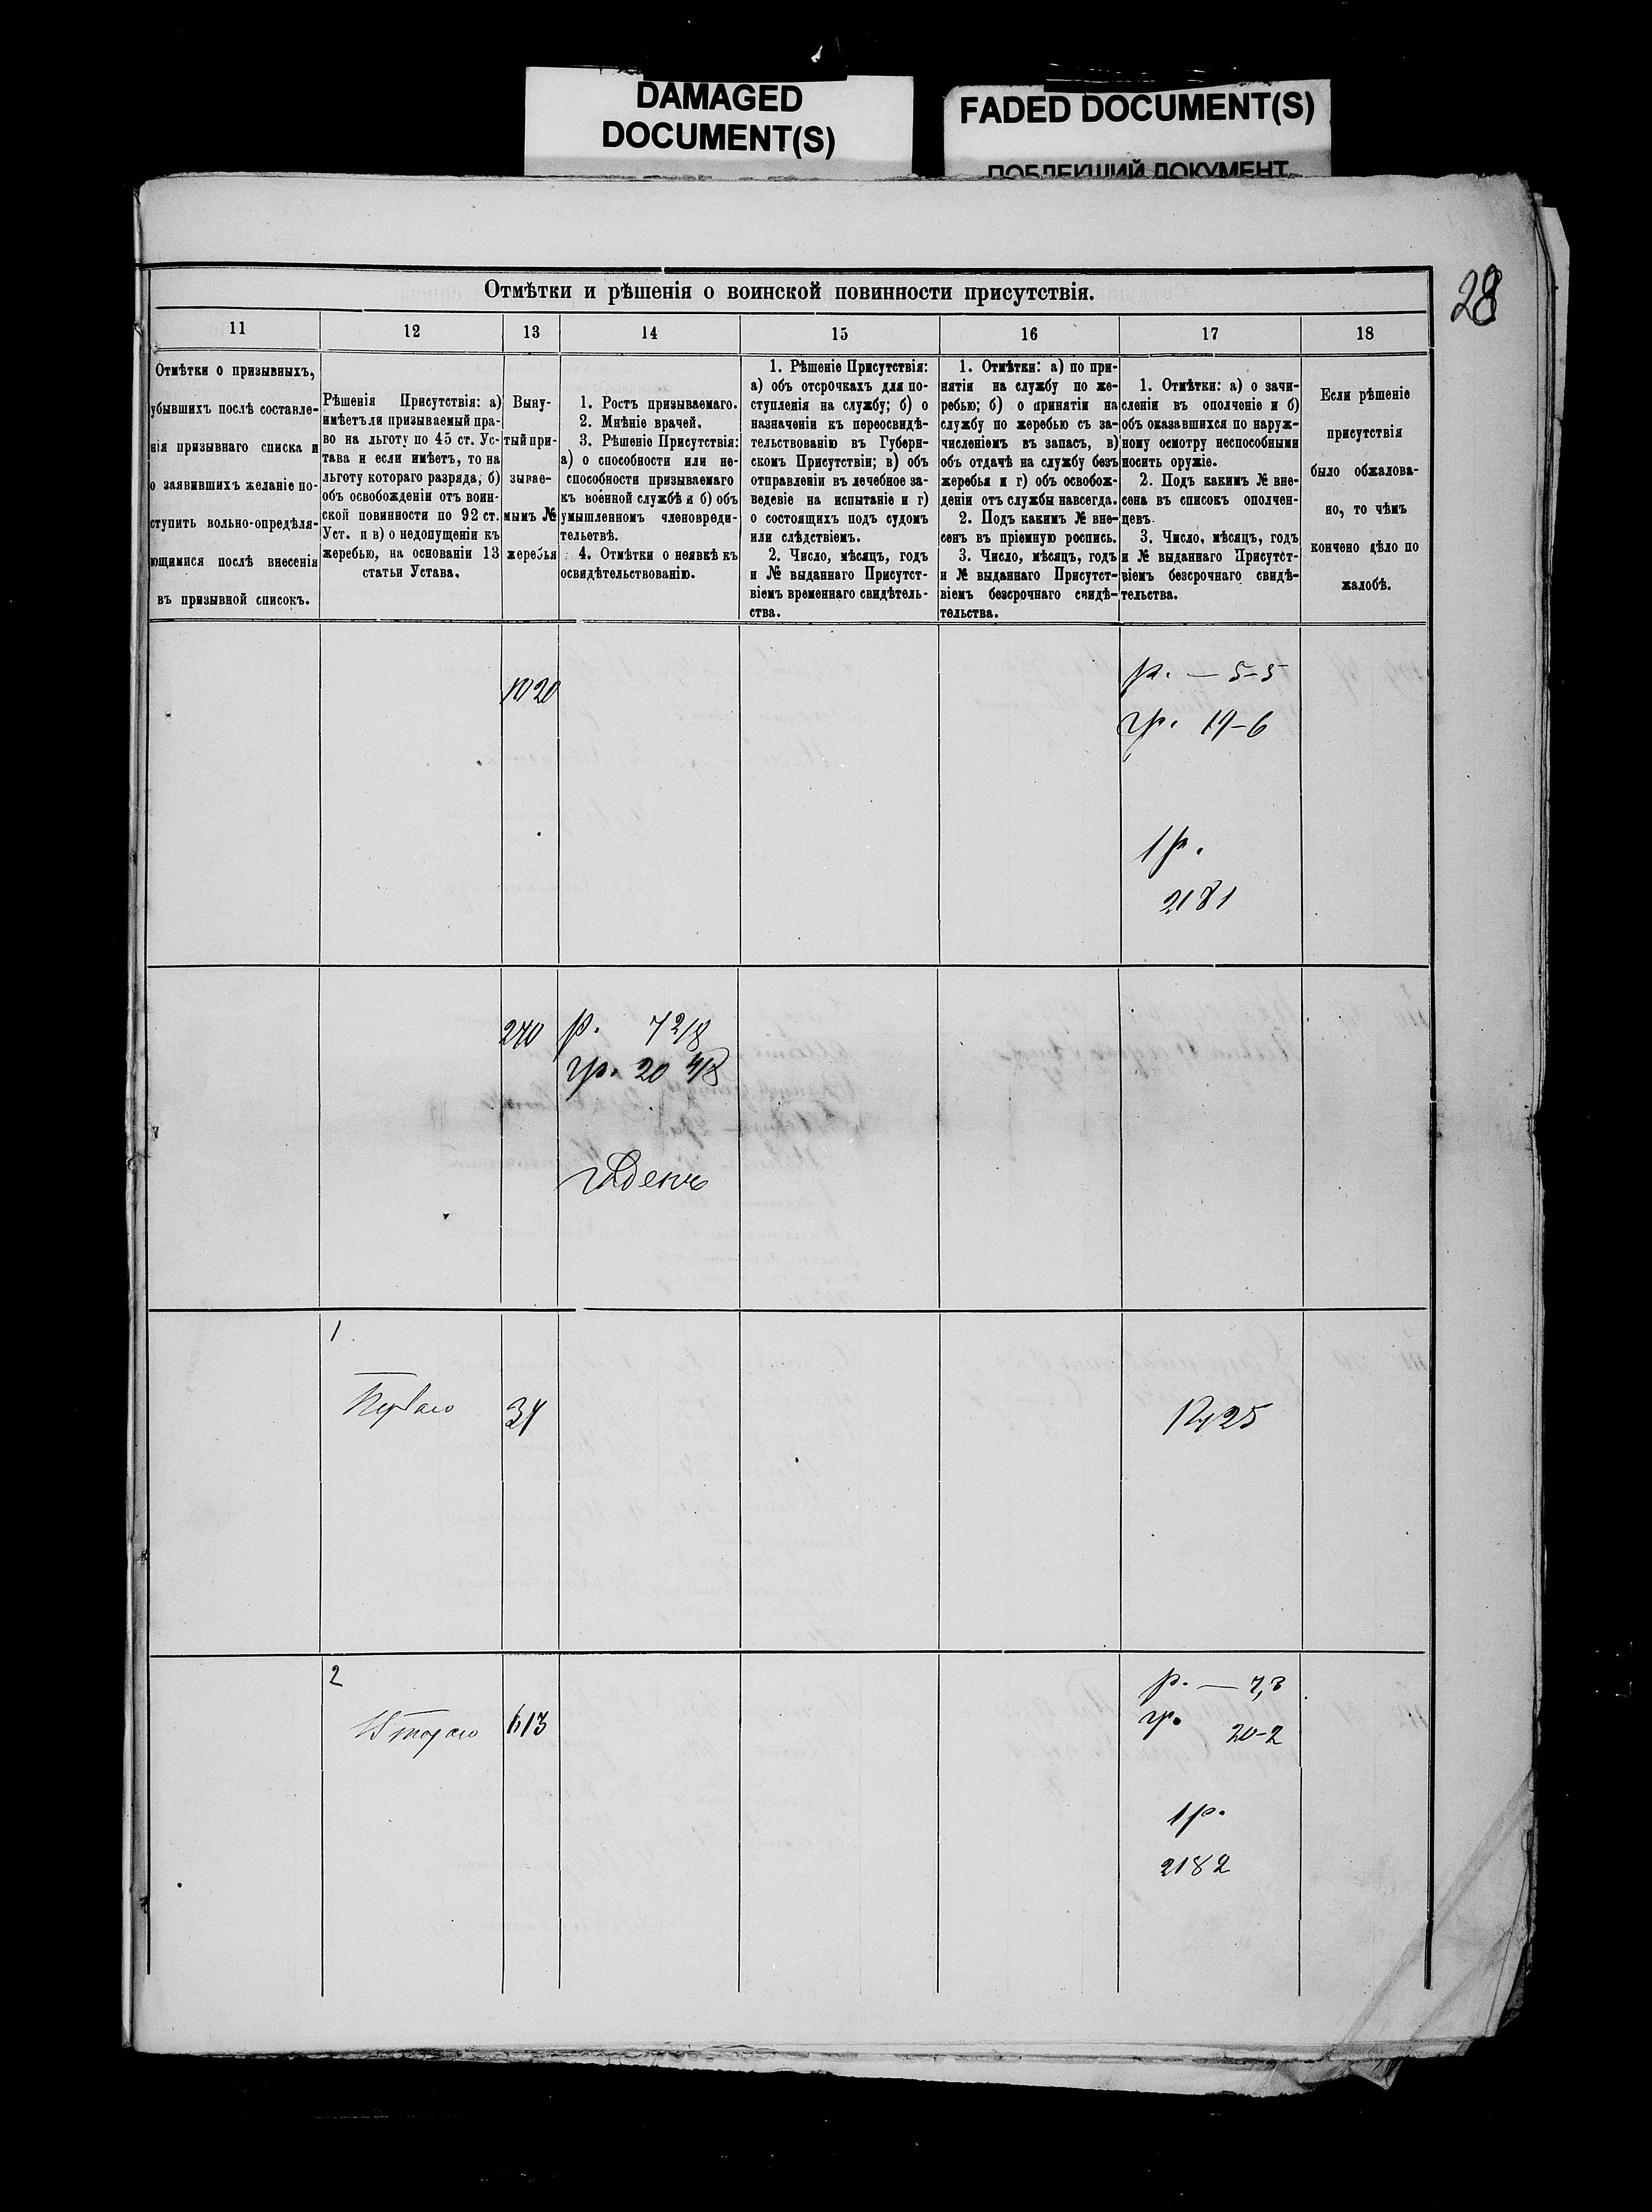 DAMAGED
DOCUMENT(S)
FADED DOCUMENT(S)
ПОБЛЕКШИЙ ДОКУМЕНТ
28
Отмѣтки и рѣшенія о воинской повинности присутствія.
11
12
13
14
15
16
17
18
Отмѣтки о призывныхъ,
убывшихъ послѣ составле-
нія призывнаго списка и
о заявившихъ желаніе по-
ступить вольно-опредѣля-
ющимися послѣ внесенія
въ призывной списокъ.
Рѣшенія Присутствія: а)
имѣетъ ли призываемый пра-
во на льготу по 45 ст. Ус-
тава и если имѣетъ, то на
льготу котораго разряда, б)
объ освобожденіи отъ воин-
ской повинности по 92 ст.
Уст. и в) о недопущеніи къ
жеребью, на основаніи 13
статьи Устава.
Выну-
тый при-
зывае-
мымъ №
жеребья
1. Ростъ призываемаго.
2. Мнѣніе врачей.
3. Рѣшеніе Присутствія:
а) о способности или не-
способности призываемаго
къ военной службѣ и б) объ
умышленномъ членовреди-
тельствѣ.
4. Отмѣтки о неявкѣ къ
освидѣтельствованію.
1. Рѣшеніе Присутствія:
а) объ отсрочкахъ для по-
ступленія на службу; б) о
назначеніи къ переосвидѣ-
тельствованію въ Губерн-
скомъ Присутствіи; в) объ
отправленіи въ лечебное за-
веденіе на испытаніе и г)
о состоящихъ подъ судомъ
или слѣдствіемъ.
2. Число, мѣсяцъ, годъ
и № выданнаго Присутст-
віемъ временнаго свидѣтель-
ства.
1. Отмѣтки: а) по при-
нятіи на службу по же-
ребью; б) о принятіи на
службу по жеребью съ за-
численіемъ въ запасъ, в)
объ отдачѣ на службу безъ
жеребья и г) объ освобож-
деніи отъ службы навсегда.
2. Подъ какимъ № вне-
сенъ въ пріемную роспись.
3. Число, мѣсяцъ, годъ
и № выданнаго Присутст-
віемъ безсрочнаго свидѣ-
тельства.
1. Отмѣтки: а) о зачи-
сленіи въ ополченіе и б)
объ оказавшихся по наруж-
ному осмотру неспособными
носить оружіе.
2. Подъ какимъ № вне-
сена въ списокъ ополчен-
цевъ.
3. Число, мѣсяцъ, годъ
и № выданнаго Присутст-
віемъ безсрочнаго свидѣ-
тельства.
Если рѣшеніе
присутствія
было обжалова-
но, то чѣмъ
кончено дѣло по
жалобѣ.
1020
р. — 5-5
гр. 19-6
1 р.
2181
240
р. 7 2/8
гр. 20 4/8
Годенъ
1
Перваго
34
1425
2
Втораго
613
р. — 7,3
гр. 20-2
1 р.
2182